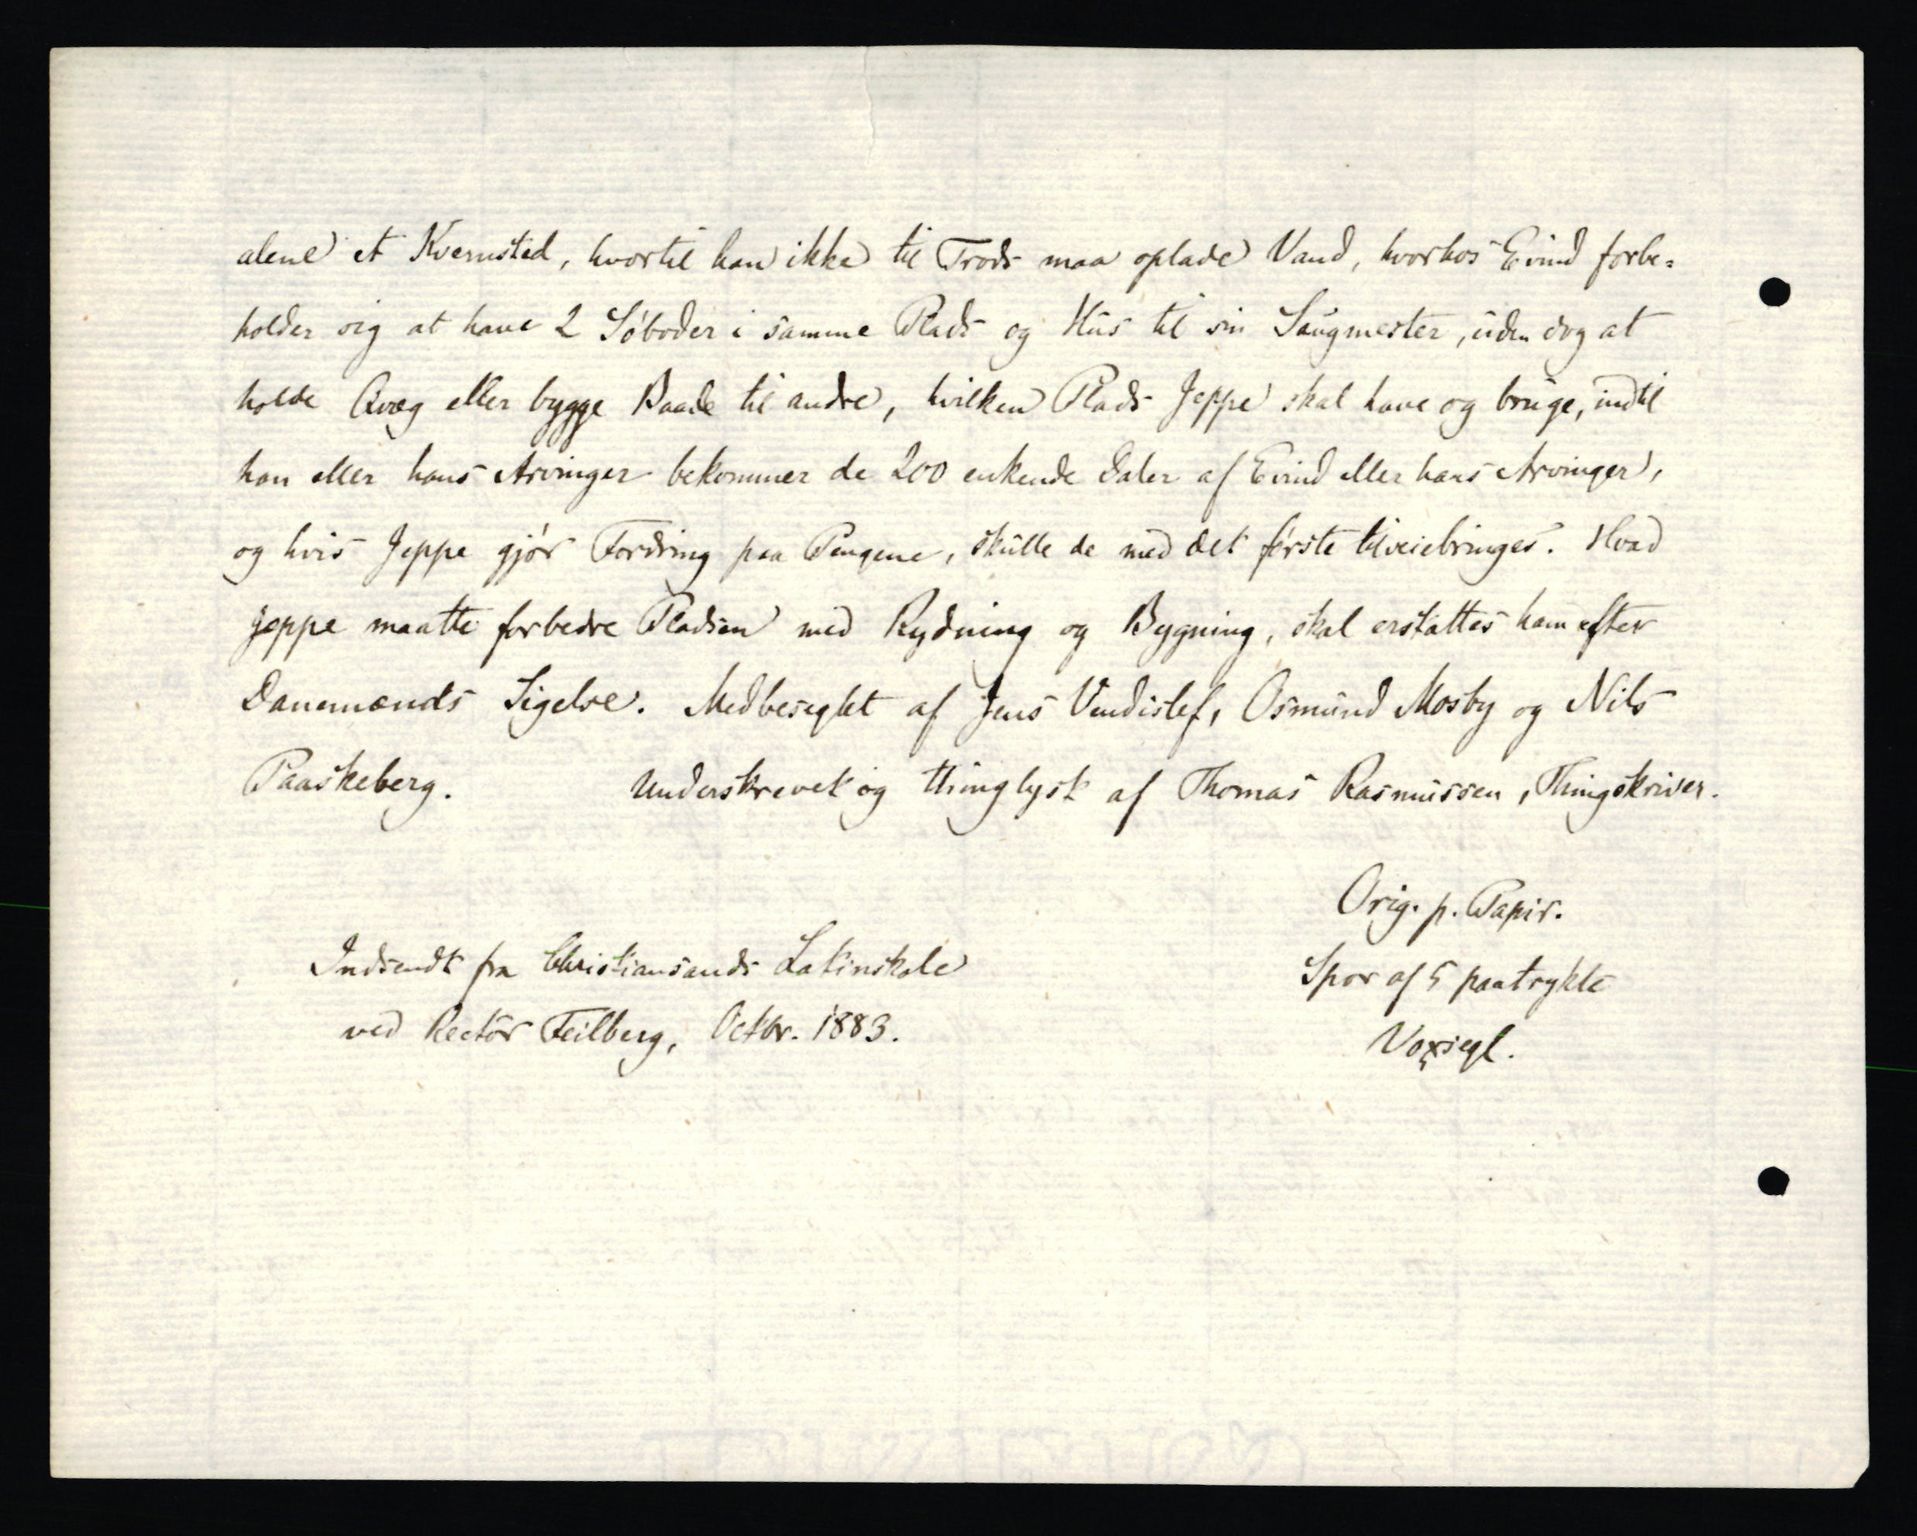 alene et Kvernsted, hvortil han ikke til Trods maa oplade Vand, hvorhos Evind forbe=
holder sig at have 2 Söboder i samme Plads og Hus til sin Saugmester, uden dog at
holde Qvæg eller bygge Baade til andre, hvilken Plads Jeppe skal have og bruge, indtil
han eller hans Arvinger bekommer de 200 enkende Daler af Evind eller hans Arvinger,
og hvis Jeppe gjör Fordring paa Pengene, skulle de med det förste tilveiebringes. Hvad
Jeppe maatte forbedre Pladsen med Rydning og Bygning, skal erstattes ham efter
Danemænds Sigelse. Medbeseglet af Jens Vendislef, Osmund Mosby og Nils
Paaskeberg. Underskrevet og thinglyst af Thomas Rasmussen, Thingskriver.
Orig. p. Papir.
Spor af 5 paatrykte
Voxsegl.
Indsendt fra Christiansands Latinskole
ved Rector Feilberg, Octbr. 1883.